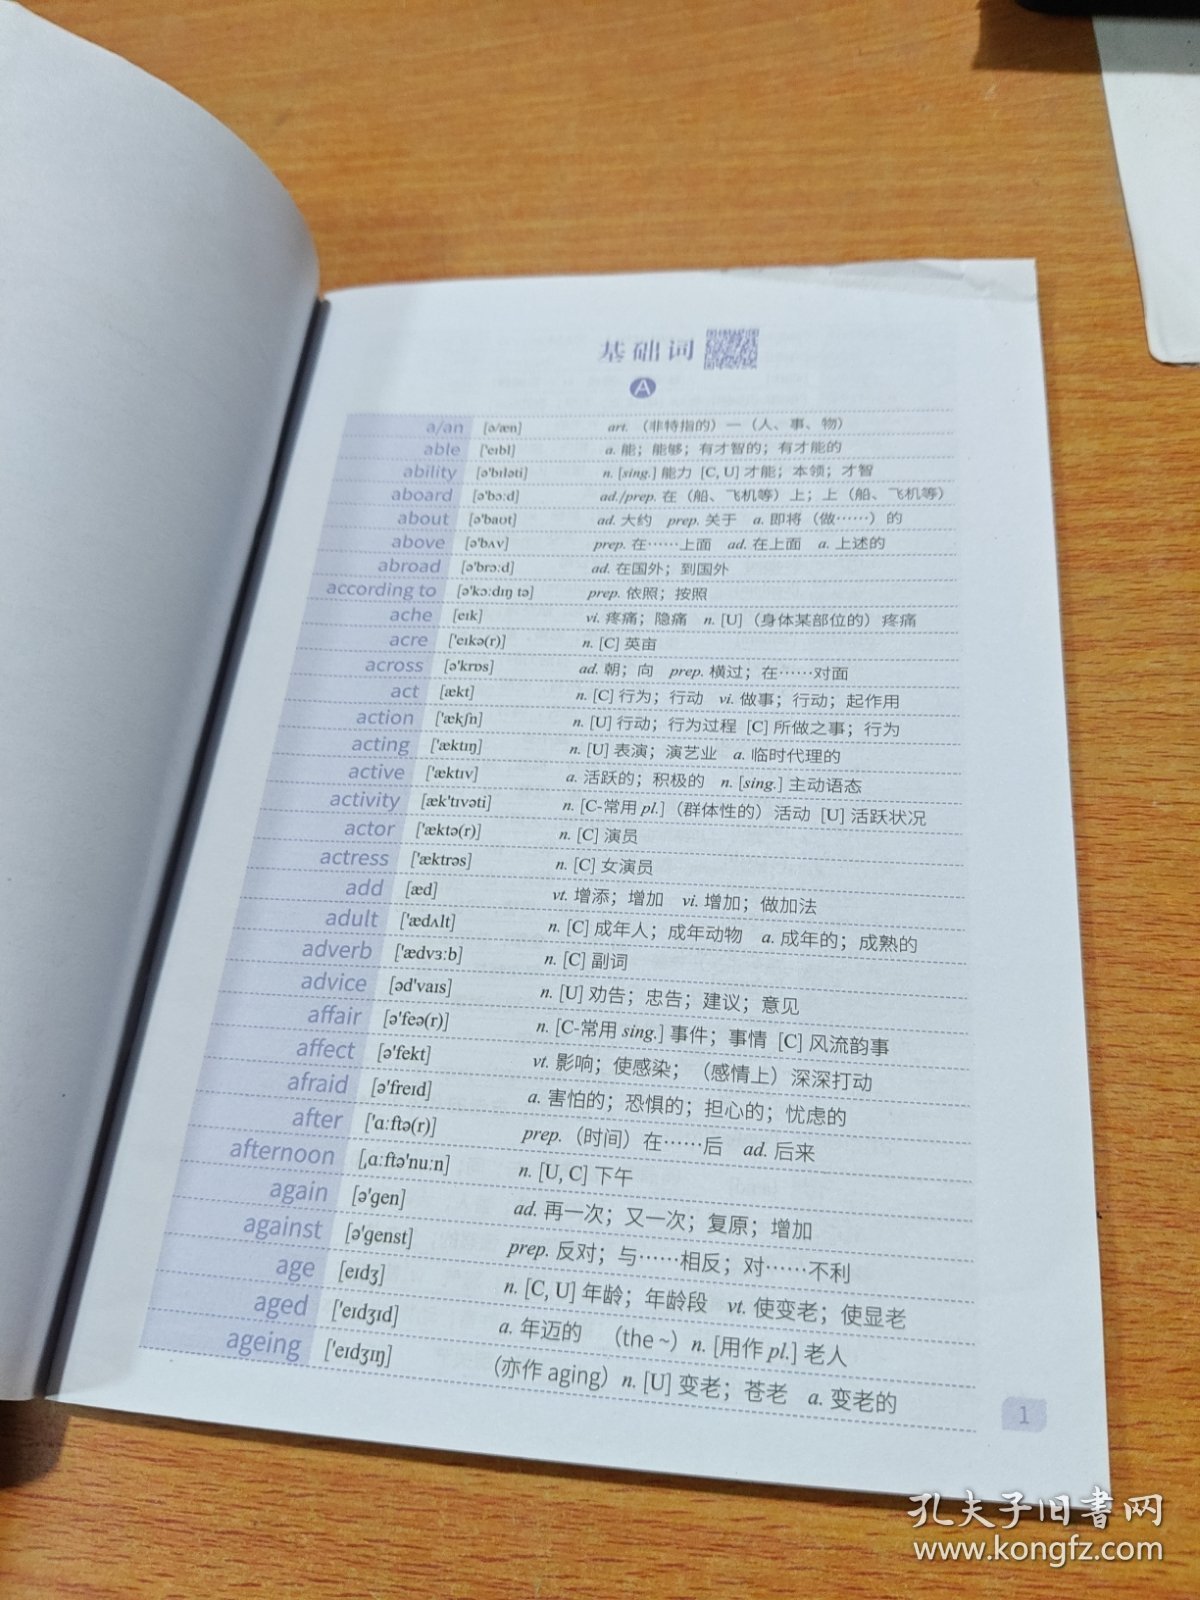 基础词
A
a/an [ə/æn] art. （非特指的）一（人、事、物）
able ['eɪbl] a. 能；能够；有才智的；有才能的
ability [ə'bɪləti] n. [sing.] 能力 [C, U] 才能；本领；才智
aboard [ə'bɔːd] ad./prep. 在（船、飞机等）上；上（船、飞机等）
about [ə'baʊt] ad. 大约 prep. 关于 a. 即将（做……）的
above [ə'bʌv] prep. 在……上面 ad. 在上面 a. 上述的
abroad [ə'brɔːd] ad. 在国外；到国外
according to [ə'kɔːdɪŋ tə] prep. 依照；按照
ache [eɪk] vi. 疼痛；隐痛 n. [U]（身体某部位的）疼痛
acre ['eɪkə(r)] n. [C] 英亩
across [ə'krɒs] ad. 朝；向 prep. 横过；在……对面
act [ækt] n. [C] 行为；行动 vi. 做事；行动；起作用
action ['ækʃn] n. [U] 行动；行为过程 [C] 所做之事；行为
acting ['æktɪŋ] n. [U] 表演；演艺业 a. 临时代理的
active ['æktɪv] a. 活跃的；积极的 n. [sing.] 主动语态
activity [æk'tɪvəti] n. [C-常用 pl.]（群体性的）活动 [U] 活跃状况
actor ['æktə(r)] n. [C] 演员
actress ['æktrəs] n. [C] 女演员
add [æd] vt. 增添；增加 vi. 增加；做加法
adult ['ædʌlt] n. [C] 成年人；成年动物 a. 成年的；成熟的
adverb ['ædvɜːb] n. [C] 副词
advice [əd'vaɪs] n. [U] 劝告；忠告；建议；意见
affair [ə'feə(r)] n. [C-常用 sing.] 事件；事情 [C] 风流韵事
affect [ə'fekt] vt. 影响；使感染；（感情上）深深打动
afraid [ə'freɪd] a. 害怕的；恐惧的；担心的；忧虑的
after ['ɑːftə(r)] prep.（时间）在……后 ad. 后来
afternoon [ˌɑːftə'nuːn] n. [U, C] 下午
again [ə'gen] ad. 再一次；又一次；复原；增加
against [ə'genst] prep. 反对；与……相反；对……不利
age [eɪdʒ] n. [C, U] 年龄；年龄段 vt. 使变老；使显老
aged ['eɪdʒɪd] a. 年迈的 （the ~）n. [用作 pl.] 老人
ageing ['eɪdʒɪŋ] （亦作 aging）n. [U] 变老；苍老 a. 变老的
1
孔夫子旧书网
www.kongfz.com